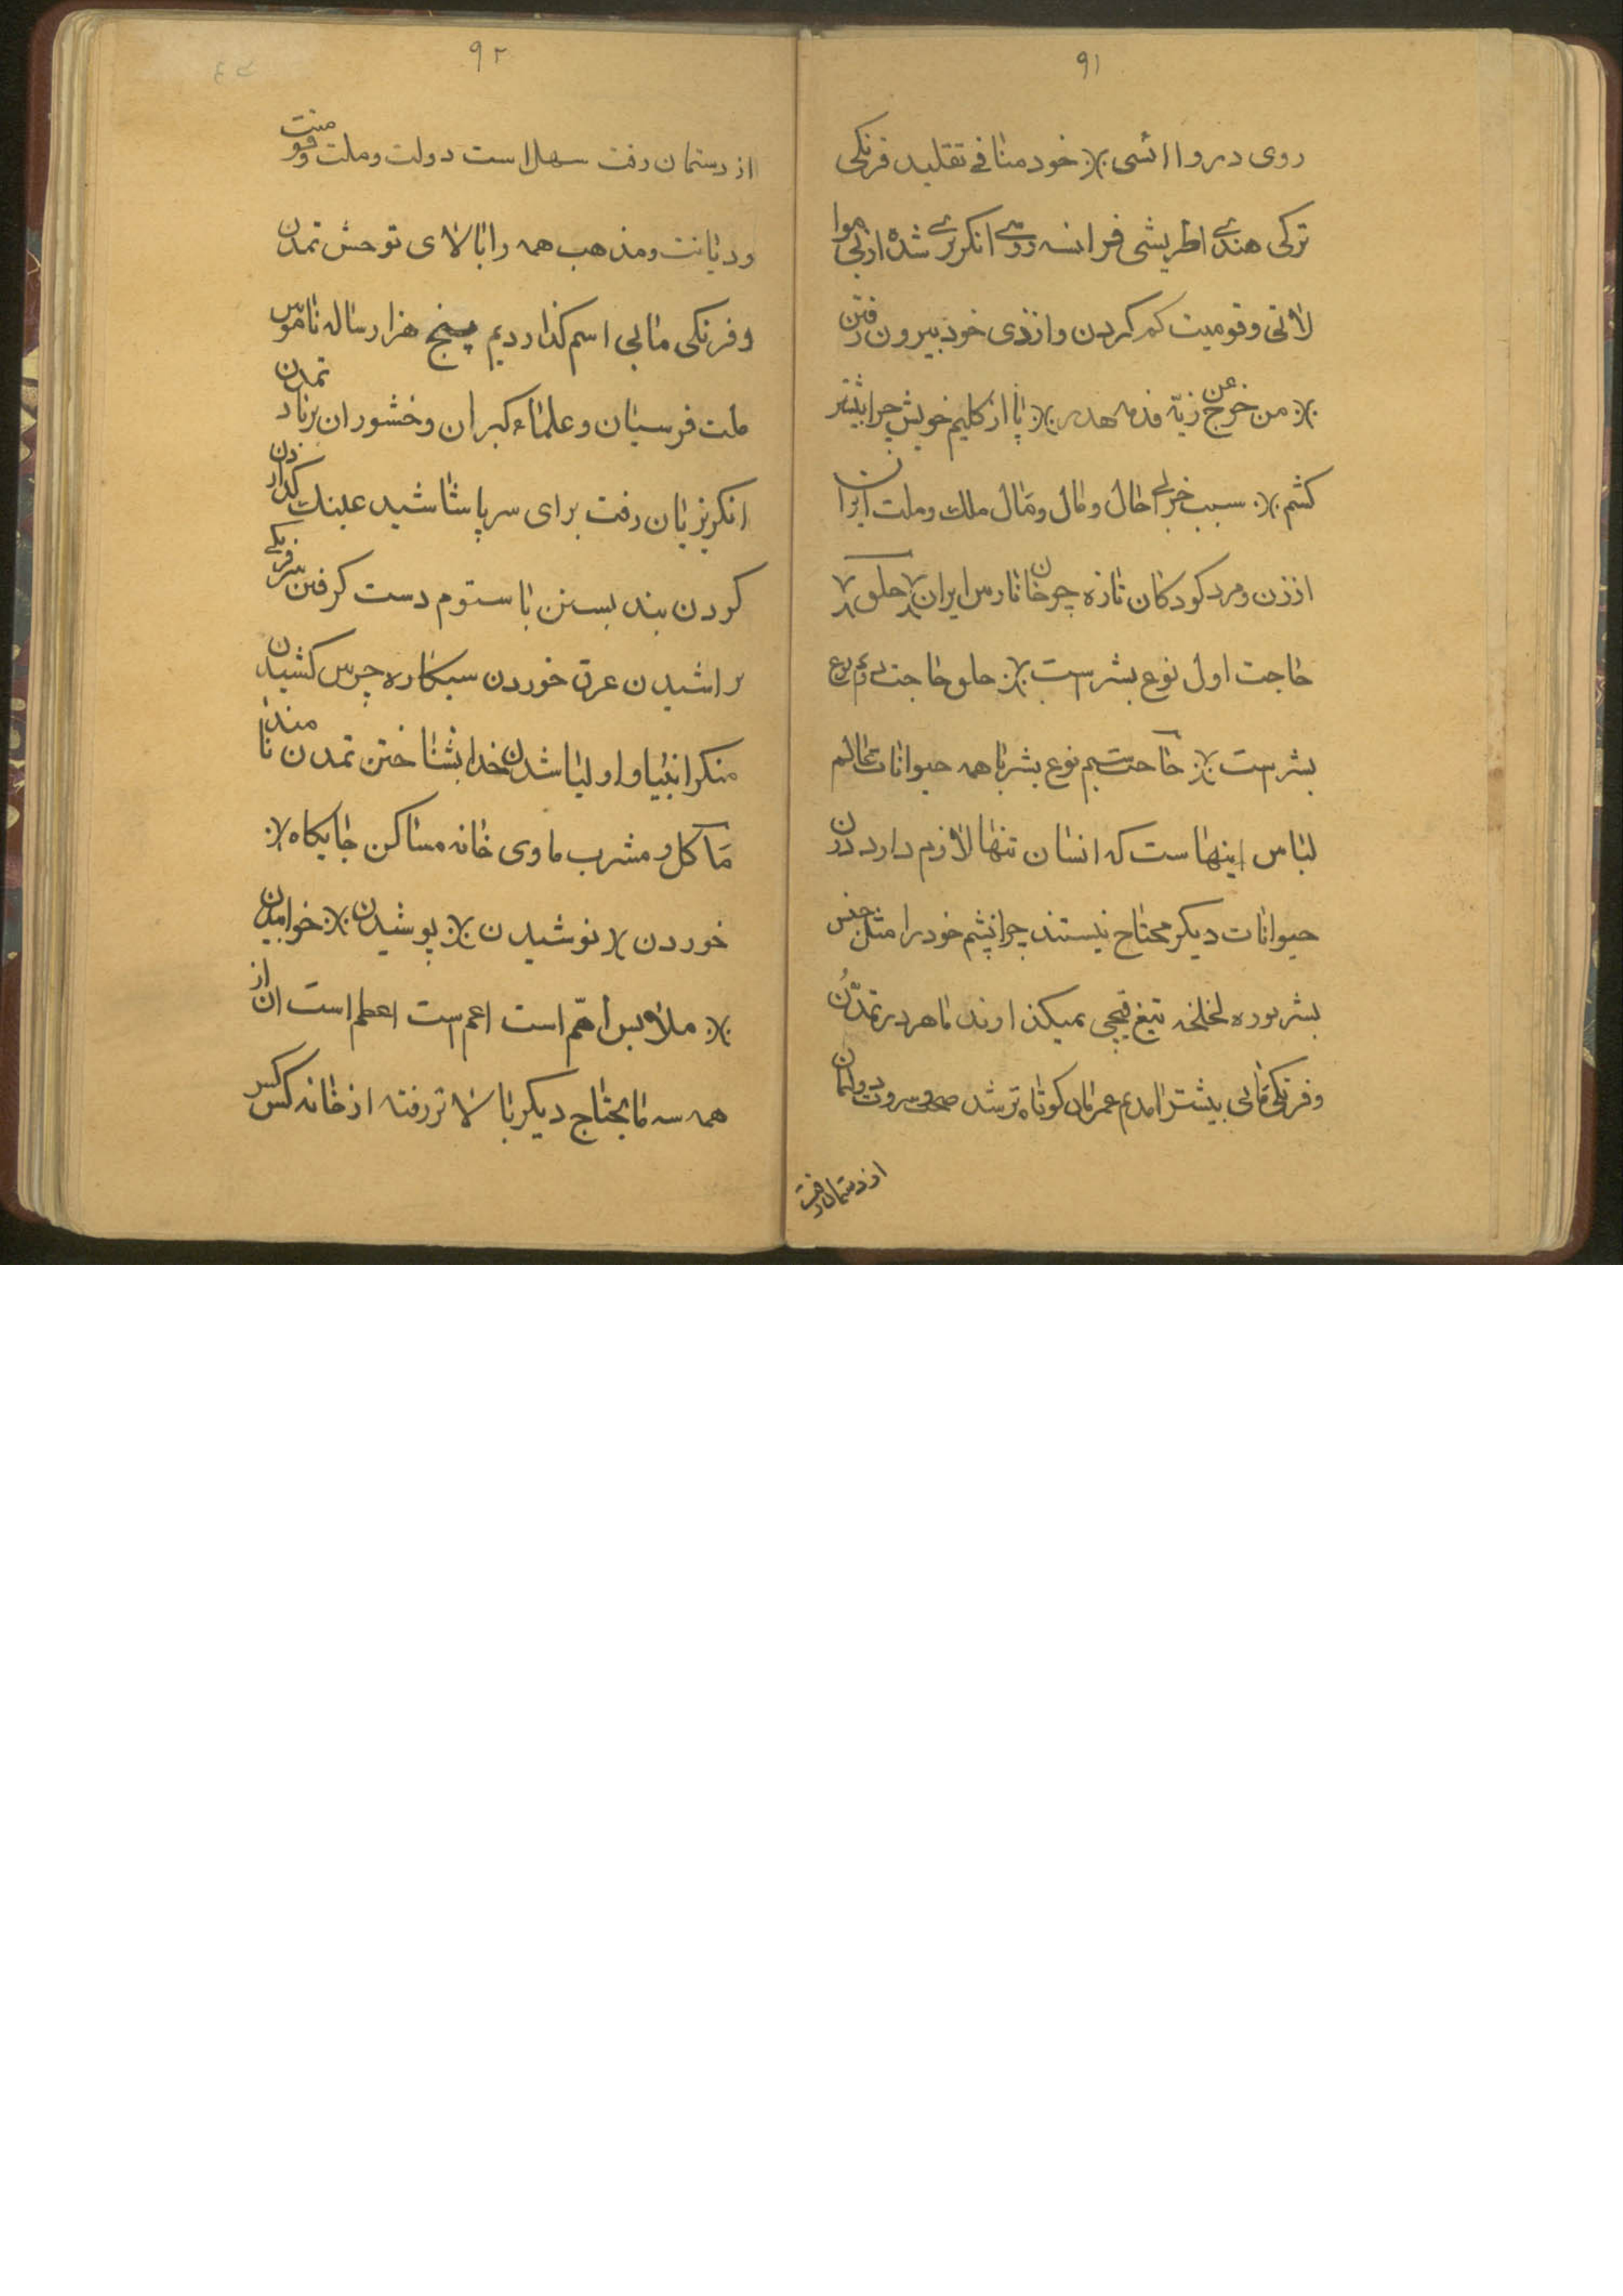 ۹۱
روی در وا اشی ٪ خود منافی تقلید فرنکی
ترکی هندی اطریشی فرانسه روسی انکریزی شده از بی هوا
لاتی و قومیت کم کردن و از زی خود بیرون رفتن
٪ من خرج عن زیّه فدمه هدر ٪ پا از کلیم خویش چرا بیشتر
کشم ٪ سبب خرابی حال و مال و مٰال ملك و ملت ایران
از زن و مرد کودکان تازه چرخانان رس ایران ٪ حلق ٪
حاجت اول نوع بشر ست ٪ جلق حاجت دویم نوع
بشر ست ٪ حاجت سیم نوع بشر با همه حیوانات عالم
لباس اینهاست که انسان تنها لازم دارد دون
حیوانات دیکر محتاج نیستند چرا پشم خود را مثل جنس
بشر نوره لخلخه تیغ قیچی نمیکذارند ما هر در تمدّن
و فرنکی مابی بیشتر امدیم عمرمان کوتاه تر شد صحت و سرور دولتمان
از دستمان رفت
۹۲
از دستمان رفت سهل است دولت و ملت و قومیت
و دیانت و مذهب همه را بالای توحش تمدن
و فرنکی مابی اسم کذاردیم پنج هزار ساله ناموس
ملت فرسیان و علماء کبران و خشوران بر باد تمدن
انکریزیان رفت برای سر پا شاشیدن عینك کذاردن
کردن بند بستن باستوم دست کرفتن سر فرنکی
تراشیدن عرق خوردن سیکاره چرس کشیدن
منکر انبیا و اولیا شدن خدا نشناختن تمدن نامند
مٰاکل و مشرب ماوی خانه مساکن جایکاه ٪
خوردن ٪ نوشیدن ٪ پوشیدن ٪ خوابیدن
٪ ملابس اهمّ است اعم ست اعظم است از ان
همه سه مایحتاج دیکر بالا تر رفته از خانه کس کس